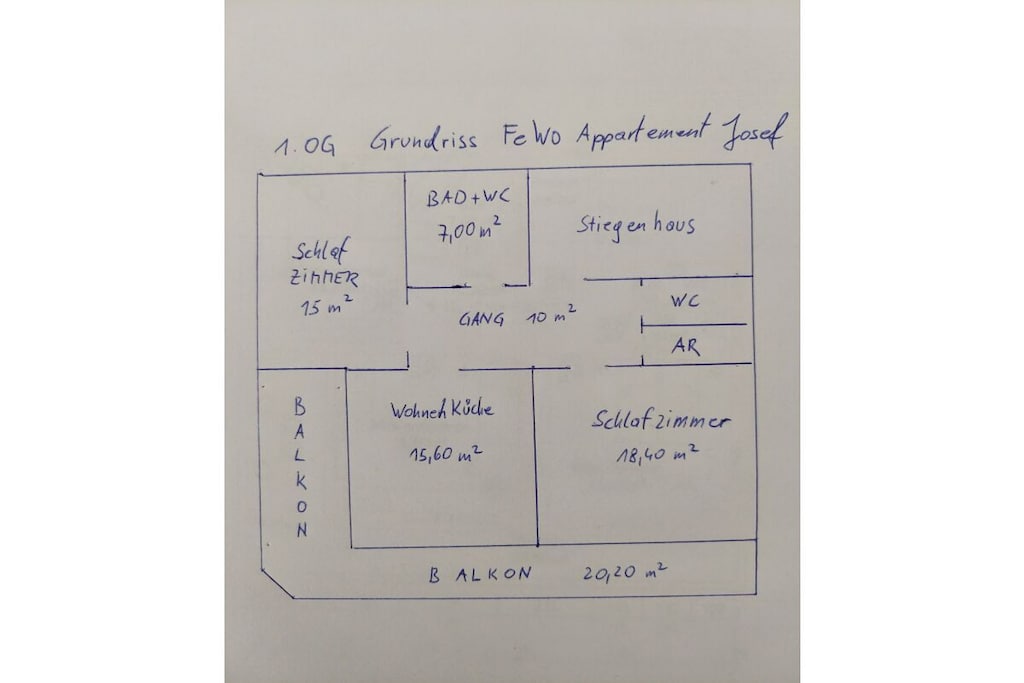 1. OG Grundriss FeWo Appartement Josef
BAD + WC
7,00 m²
Stiegenhaus
Schlaf
ZIMMER
15 m²
WC
GANG 10 m²
AR
BALKON
Wohnen Küche
15,60 m²
Schlafzimmer
18,40 m²
BALKON 20,20 m²